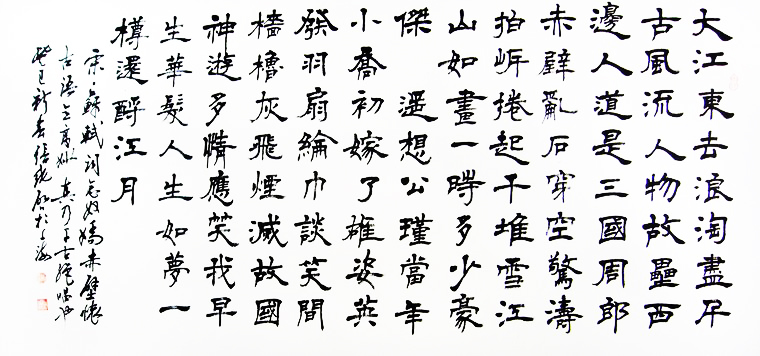 大江東去浪淘盡千
古風流人物故壘西
邊人道是三國周郎
赤壁亂石穿空驚濤
拍岸捲起千堆雪江
山如畫一時多少豪
傑 遥想公瑾當年
小喬初嫁了雄姿英
發羽扇綸巾談笑間
檣櫓灰飛煙滅故國
神遊多情應笑我早
生華髮人生如夢一
樽還酹江月
宋蘇軾詞念奴嬌赤壁懷
古語意高妙真乃千古絕唱也
癸巳新春張於上海